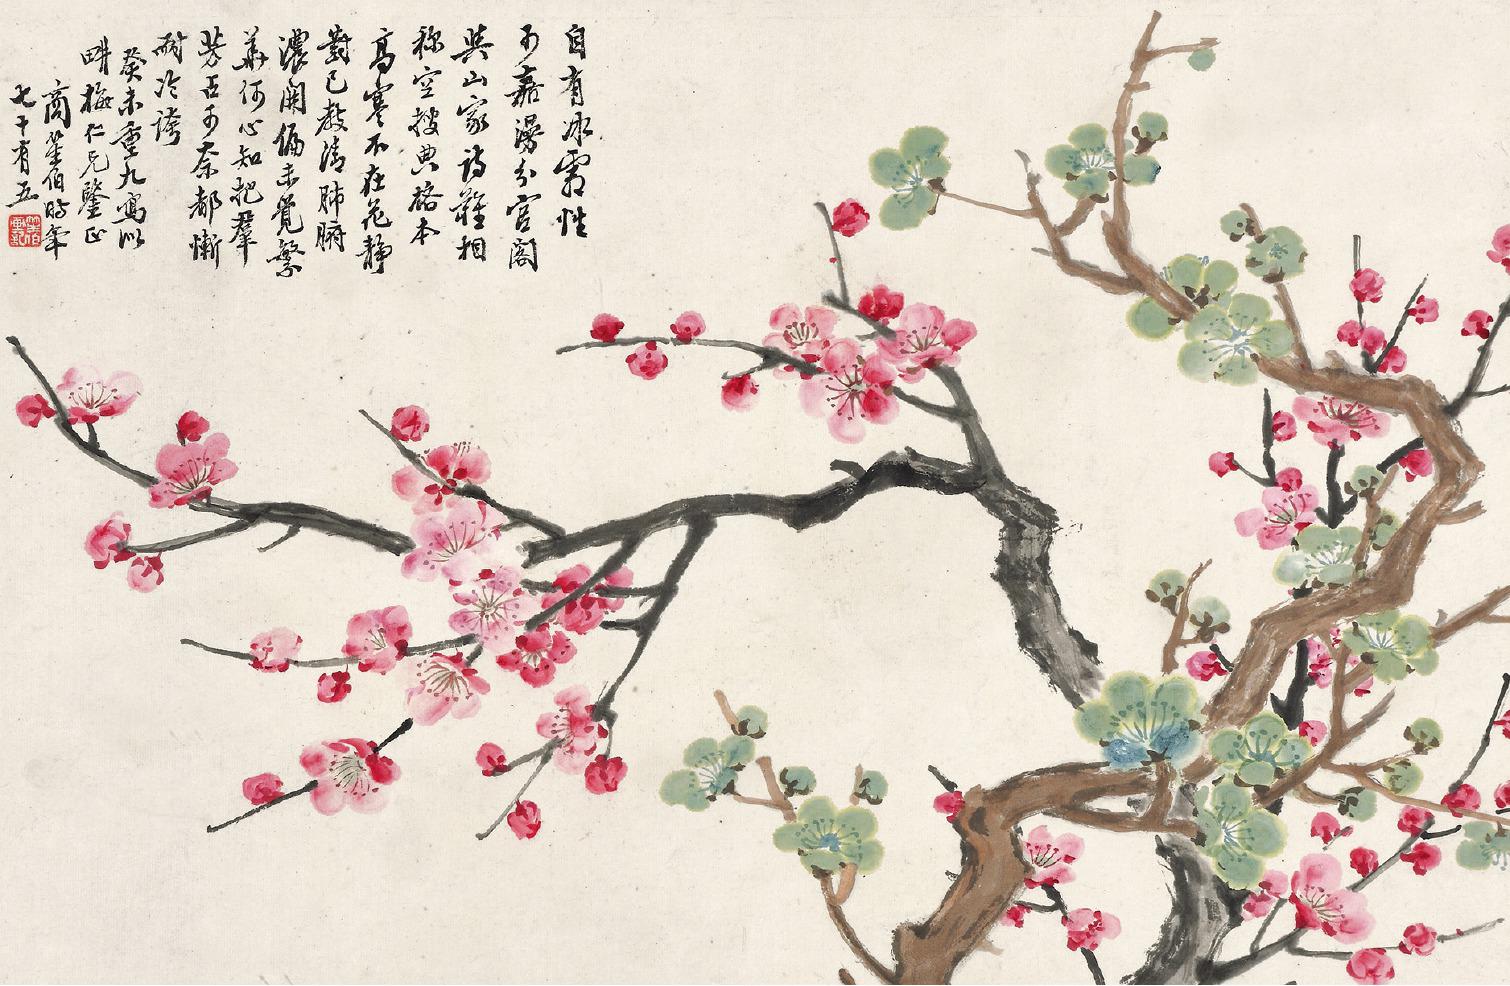 自有冰霜性
可嘉漫分官閣
與山家詩難相
称空搜典格本
高寒不在花靜
對已教清肺腑
濃開偏未覺繁
華何心知把羣
芳亞可奈都慚
耐冷誇
癸未重九寫似
畊梅仁兄鑒正
商笙伯時年
七十有五